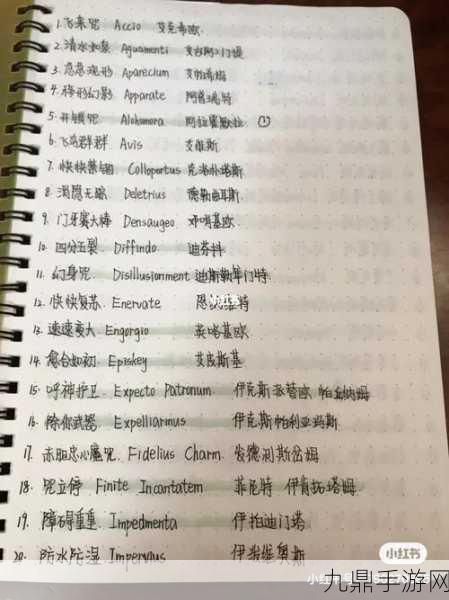 1. 飞来咒 Accio 艾克希欧
2. 清水如泉 Aguamenti
3. 急急现形 Aparecium
4. 移形幻影 Apparate 阿普瑞特
5. 开锁咒 Alohomora 阿拉霍默拉
6. 飞鸟群群 Avis 艾维斯
7. 快快禁锢 Colloportus 克洛扑塔斯
8. 消隐无踪 Deletrius
9. 门牙赛大棒 Densaugeo 邓哨基欧
10. 四分五裂 Diffindo 迪芬科
11. 幻身咒 Disillusionment 迪斯勒犀门特
12. 快快复苏 Enervate 维特
13. 速速变大 Engorgio 英哈基欧
14. 愈合如初 Episkey 艾皮斯基
15. 呼神护卫 Expecto Patronum 伊克斯派替欧 帕丘纳姆
16. 除你武器 Expelliarmus 伊克斯帕利亚玛斯
17. 赤胆忠心魔咒 Fidelius Charm 发德润斯岔姆
18. 咒立停 Finite Incantatem 菲尼特 伊肯拓塔姆
19. 障碍重重 Impedimenta 伊柏迪门塔
20. 防水防湿 Impervius
小红书
九鼎手游网